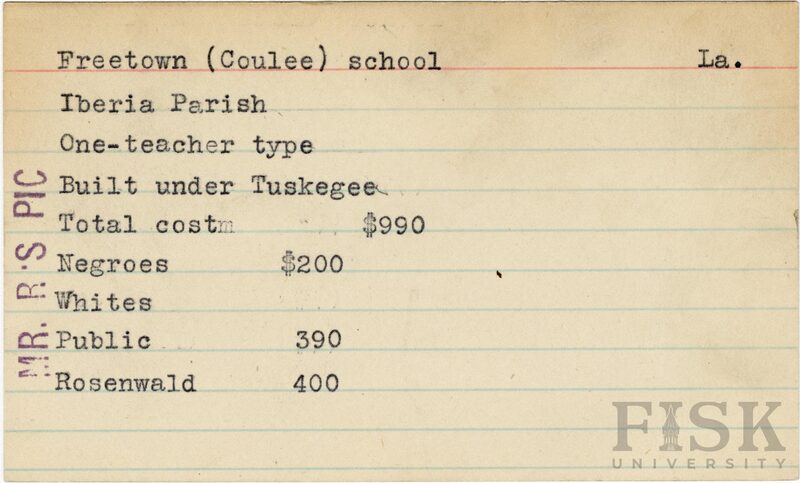 Freetown (Coulee) school La.
Iberia Parish
One-teacher type
Built under Tuskegee
Total cost $990
Negroes $200
Whites
Public 390
Rosenwald 400
MR. R'S PIC
FISK
UNIVERSITY